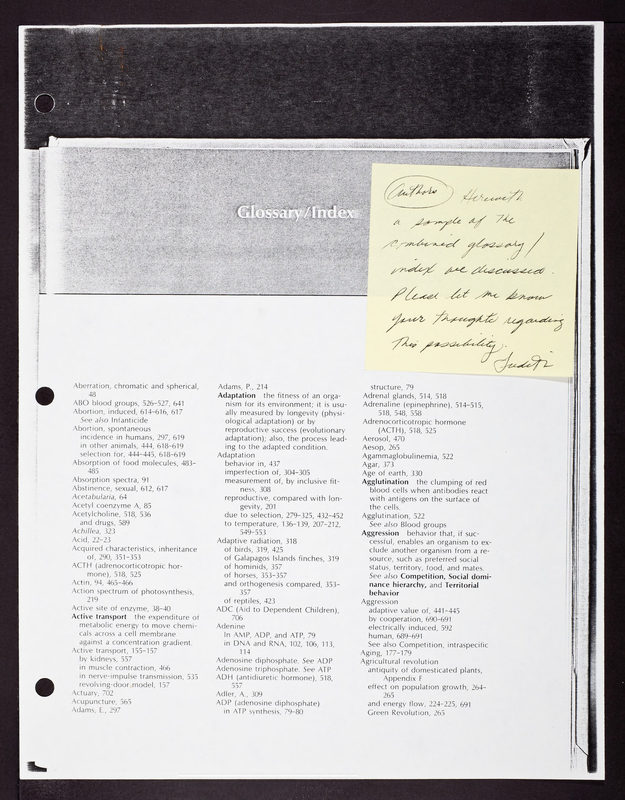 Glossary/Index
Authors Herewith
a sample of the
combined glossary/
index we discussed.
Please let me know
your thoughts regarding
this possibility.
Judith
Aberration, chromatic and spherical,
48
ABO blood groups, 526–527, 641
Abortion, induced, 614–616, 617
See also Infanticide
Abortion, spontaneous
incidence in humans, 297, 619
in other animals, 444, 618–619
selection for, 444–445, 618–619
Absorption of food molecules, 483–
485
Absorption spectra, 91
Abstinence, sexual, 612, 617
Acetabularia, 64
Acetyl coenzyme A, 85
Acetylcholine, 518, 536
and drugs, 589
Achillea, 323
Acid, 22–23
Acquired characteristics, inheritance
of, 290, 351–353
ACTH (adrenocorticotropic hor-
mone), 518, 525
Actin, 94, 465–466
Action spectrum of photosynthesis,
219
Active site of enzyme, 38–40
Active transport the expenditure of
metabolic energy to move chemi-
cals across a cell membrane
against a concentration gradient.
Active transport, 155–157
by kidneys, 557
in muscle contraction, 466
in nerve-impulse transmission, 535
revolving-door model, 157
Actuary, 702
Acupuncture, 565
Adams, E., 297
Adams, P., 214
Adaptation the fitness of an orga-
nism for its environment; it is usu-
ally measured by longevity (physi-
ological adaptation) or by
reproductive success (evolutionary
adaptation); also, the process lead-
ing to the adapted condition.
Adaptation
behavior in, 437
imperfection of, 304–305
measurement of, by inclusive fit-
ness, 308
reproductive, compared with lon-
gevity, 201
due to selection, 279–325, 432–452
to temperature, 136–139, 207–212,
549–553
Adaptive radiation, 318
of birds, 319, 425
of Galapagos Islands finches, 319
of hominids, 357
of horses, 353–357
and orthogenesis compared, 353–
357
of reptiles, 423
ADC (Aid to Dependent Children),
706
Adenine
In AMP, ADP, and ATP, 79
in DNA and RNA, 102, 106, 113,
114
Adenosine diphosphate. See ADP
Adenosine triphosphate. See ATP
ADH (antidiuretic hormone), 518,
557
Adler, A., 309
ADP (adenosine diphosphate)
in ATP synthesis, 79–80
structure, 79
Adrenal glands, 514, 518
Adrenaline (epinephrine), 514–515,
518, 548, 558
Adrenocorticotropic hormone
(ACTH), 518, 525
Aerosol, 470
Aesop, 265
Agammaglobulinemia, 522
Agar, 373
Age of earth, 330
Agglutination the clumping of red
blood cells when antibodies react
with antigens on the surface of
the cells.
Agglutination, 522
See also Blood groups
Aggression behavior that, if suc-
cessful, enables an organism to ex-
clude another organism from a re-
source, such as preferred social
status, territory, food, and mates.
See also Competition, Social domi-
nance hierarchy, and Territorial
behavior
Aggression
adaptive value of, 441–445
by cooperation, 690–691
electrically induced, 592
human, 689–691
See also Competition, intraspecific
Aging, 177–179
Agricultural revolution
antiquity of domesticated plants,
Appendix F
effect on population growth, 264–
265
and energy flow, 224–225, 691
Green Revolution, 265